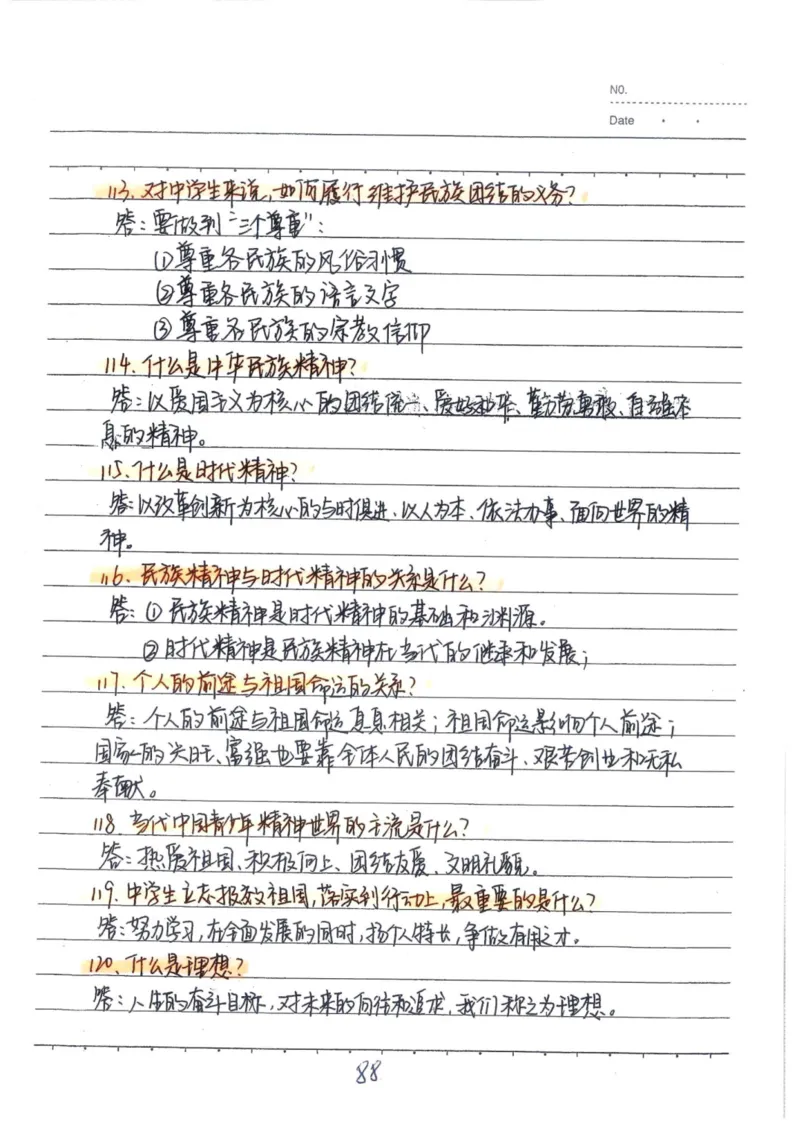 NO.
Date
113. 对中学生来说,如何履行维护民族团结的义务?
答:要做到“三个尊重”:
①尊重各民族的风俗习惯
②尊重各民族的语言文字
③尊重各民族的宗教信仰
114. 什么是中华民族精神?
答:以爱国主义为核心的团结统一、爱好和平、勤劳勇敢、自强不
息的精神。
115、什么是时代精神?
答:以改革创新为核心的与时俱进、以人为本、依法办事、面向世界的精
神。
116、民族精神与时代精神的关系是什么?
答:①民族精神是时代精神的基础和渊源。
②时代精神是民族精神在当代的继承和发展;
117. 个人的前途与祖国命运的关系?
答:个人的前途与祖国命运息息相关;祖国命运影响个人前途;
国家的兴旺、富强也要靠全体人民的团结奋斗、艰苦创业和无私
奉献。
118. 当代中国青少年精神世界的主流是什么?
答:热爱祖国、积极向上、团结友爱、文明礼貌。
119. 中学生立志报效祖国,落实到行动上,最重要的是什么?
答:努力学习,在全面发展的同时,扬个人特长,争做有用之才。
120、什么是理想?
答:人生的奋斗目标,对未来的向往和追求,我们称之为理想。
88